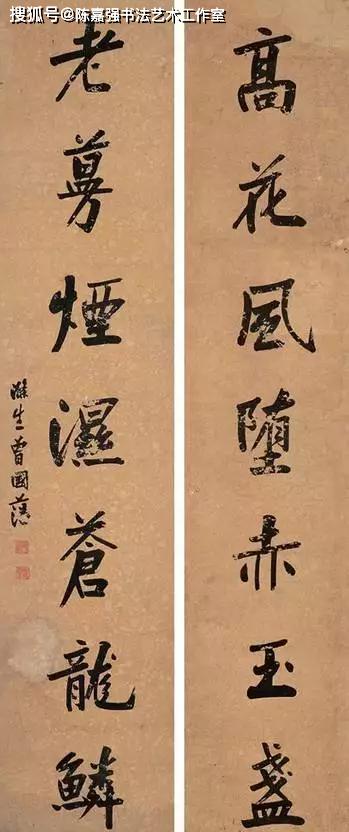 搜狐号@陈嘉强书法艺术工作室
高花風堕赤玉盞
老蔓煙濕蒼龍鱗
滌生曾國藩